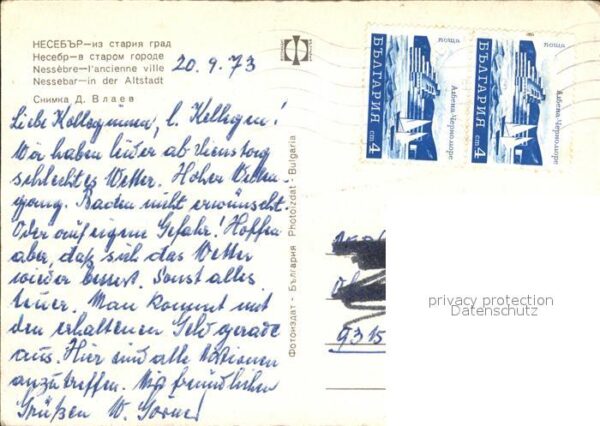 НЕСЕБЪР—из стария град
Несебр—в старом городе
Nessèbre—l'ancienne ville
Nessebar—in der Altstadt
Снимка Д. Влаев
20. 9. 73
Liebe Kolleginnen, l. Kollegen!
Wir haben leider ab Dienstag
schlechtes Wetter. Hoher Wellen-
gang. Baden nicht erwünscht.
Oder auf eigene Gefahr! Hoffen
aber, daß sich das Wetter
wieder bessert. Sonst alles
teuer. Man kommt mit
den erhaltenen Geld gerade
aus. Hier sind alle Nationen
anzutreffen. Mit freundlichen
Grüßen W.
Фотоиздат - България Photoizdat - Bulgaria
БЪЛГАРИЯ
поща
Албена-Черноморе
ст 4
БЪЛГАРИЯ
поща
Албена-Черноморе
ст 4
9315
privacy protection
Datenschutz